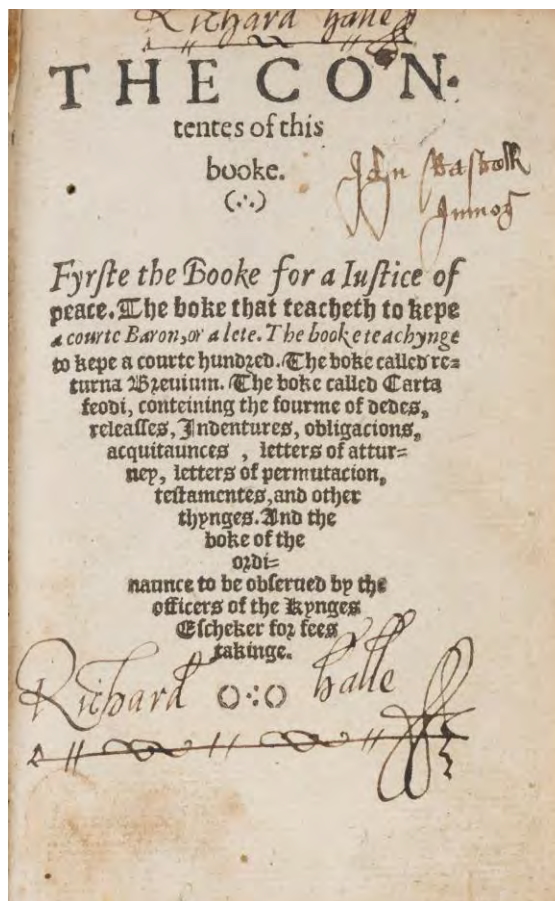 Richard halle
THE CON-
tentes of this
booke.
(∴)
John
Fyrste the Booke for a Iustice of
peace. The boke that teacheth to kepe
a courte Baron, or a lete. The booke teachynge
to kepe a courte hundred. The boke called re=
turna Breuium. The boke called Carta
feodi, conteining the fourme of dedes,
releasses, Indentures, obligacions,
acquitaunces , letters of attur=
ney, letters of permutacion,
testamentes, and other
thynges. And the
boke of the
ordi=
naunce to be obserued by the
officers of the Kynges
Escheker for fees
takinge.
Richard halle